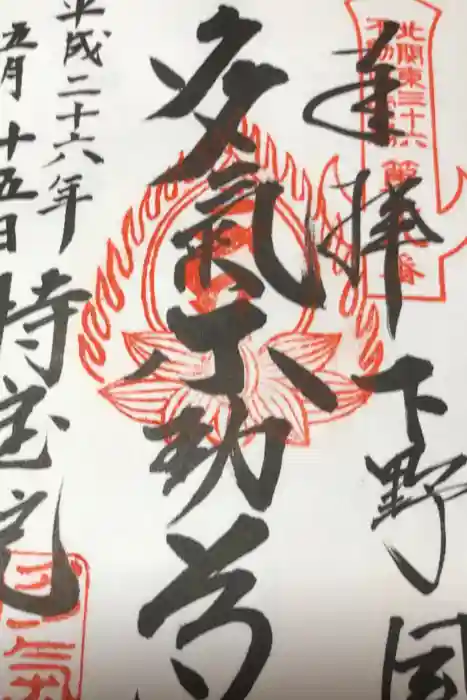 北関東三十六
不動尊霊場
奉拝 下野国
多氣不動尊
平成二十六年
五月十五日
持宝院